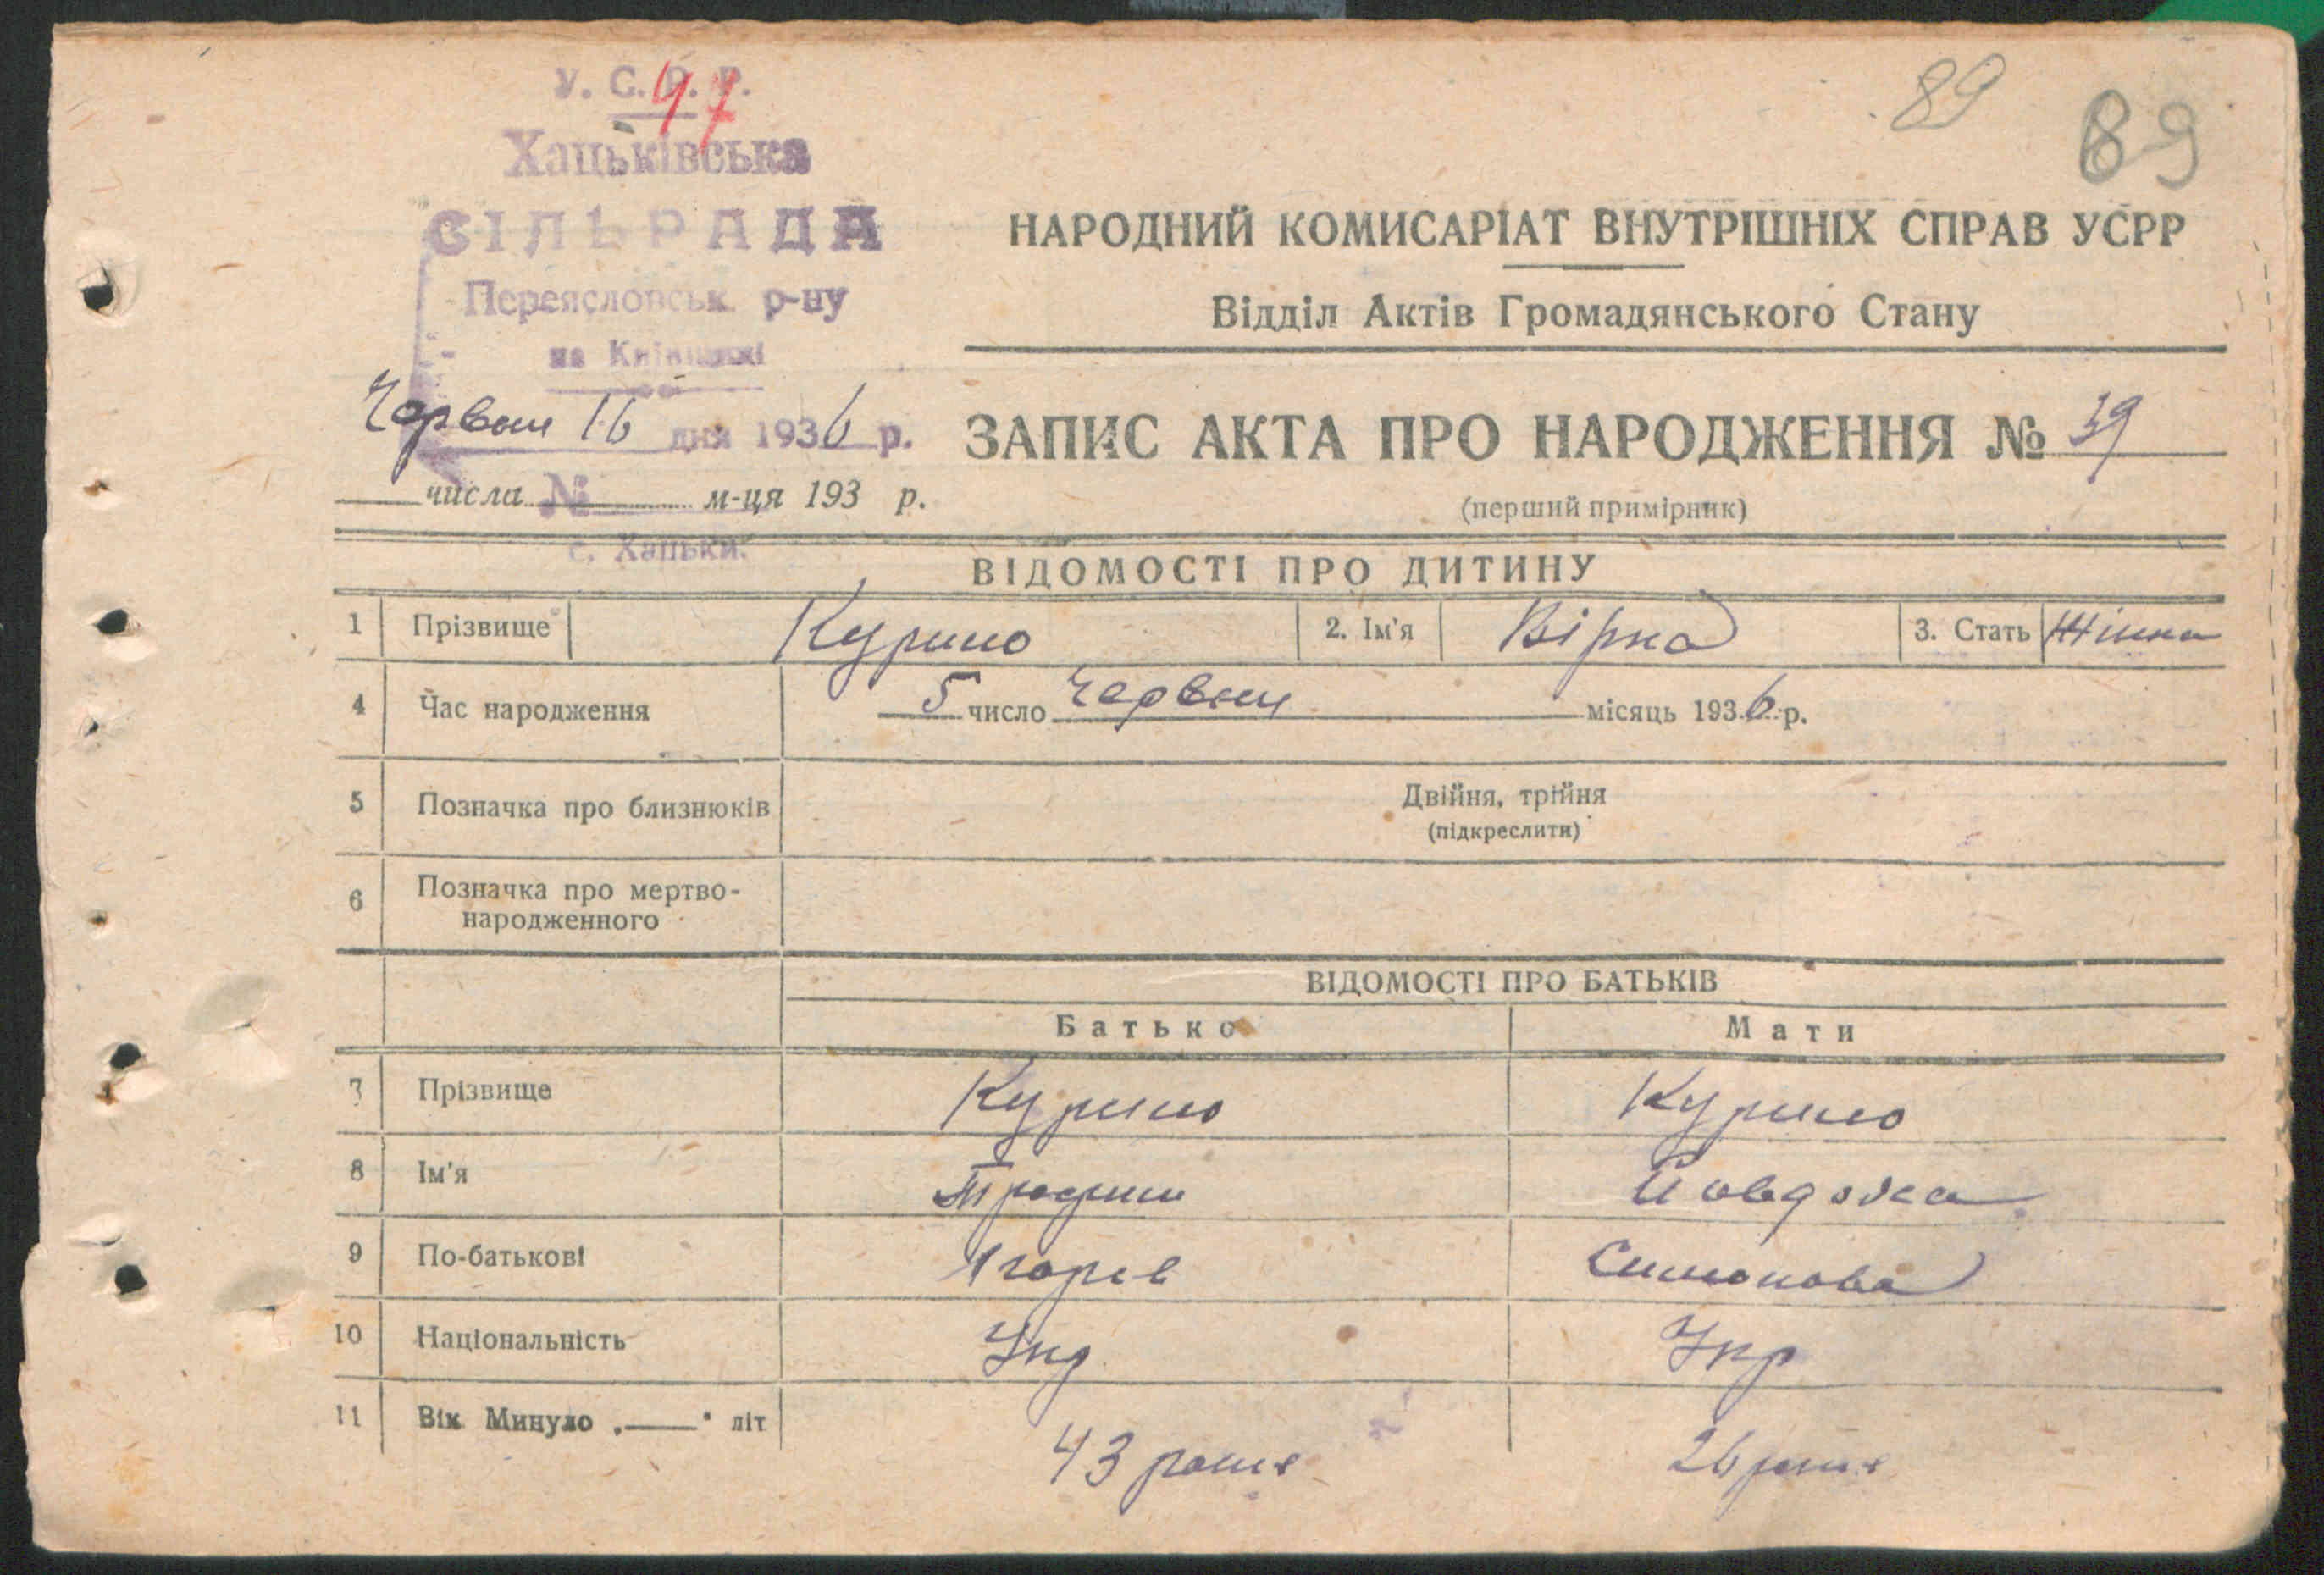 У. С. Р. Р.
97
Хацьківська
СІЛЬРАДА
Переясловськ р-ну
на Київщині
89
89
НАРОДНИЙ КОМИСАРІАТ ВНУТРІШНІХ СПРАВ УСРР
Відділ Актів Громадянського Стану
Червня 16 дня 1936 р.
ЗАПИС АКТА ПРО НАРОДЖЕННЯ № 39
числа № м-ця 193 р.
(перший примірник)
с. Хацьки.
ВІДОМОСТІ ПРО ДИТИНУ
1 Прізвище Курило 2. Ім'я Вірка 3. Стать Жінка
4 Час народження 5 число Червня місяць 1936 р.
5 Позначка про близнюків Двійня, трійня
(підкреслити)
6 Позначка про мертво-
народженного
ВІДОМОСТІ ПРО БАТЬКІВ
Батько Мати
7 Прізвище Курило Курило
8 Ім'я
9 По-батькові Симонова
10 Національність Укр Укр
11 Вік Минуло „—" літ
43 роки 26 роки